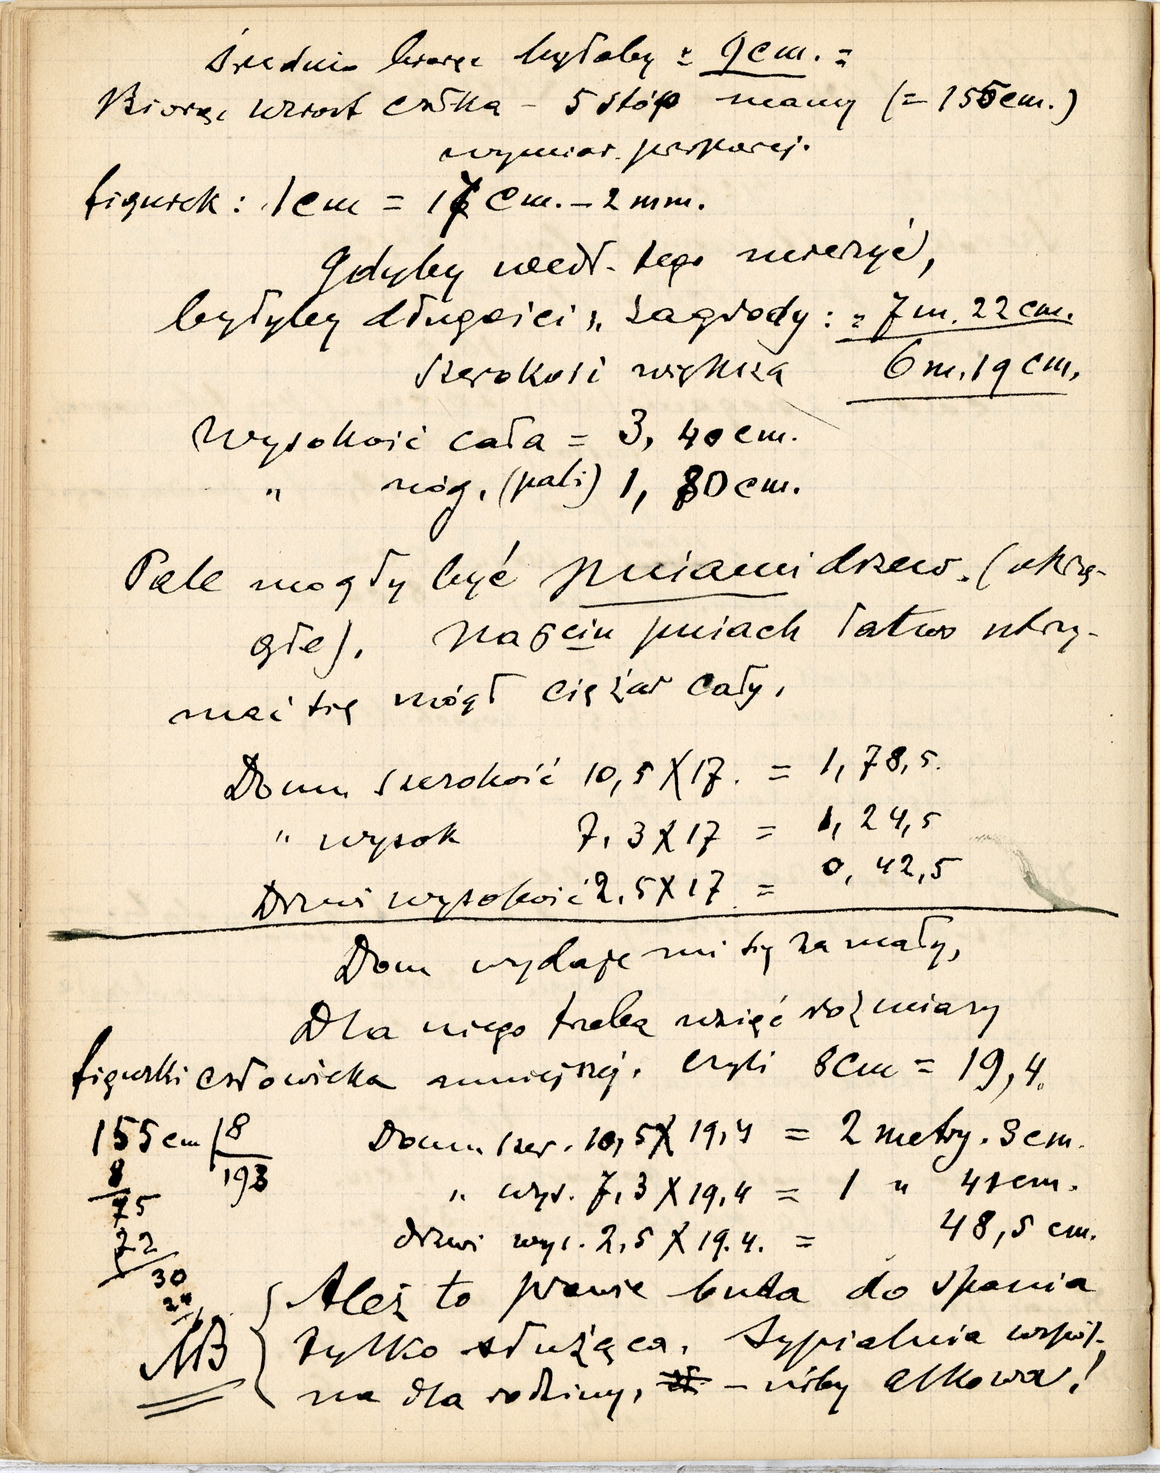 Średnio biorąc byłaby = 9cm. =
Biorąc wzrost człka – 5 stóp mamy (= 155cm.)
wymiar.
figurek: 1cm = 17 cm. – 2 mm.
Gdyby wedł. tego mierzyć,
byłyby długości „ zagrody: = 7 m. 22 cm.
szerokość większa 6 m. 19 cm.
Wysokość cała = 3, 40 cm.
„ nóg. (pali) 1, 80 cm.
Pale mogły być pniami drzew. (okrą-
głe). Na 6ciu pniach łatwo utrzy-
mać się mógł ciężar cały.
Domu szerokość 10,5 X 17. = 1,78,5.
„ wysok 7,3 X 17 = 1,24,5
Drzwi wysokość 2,5 X 17 = 0,42,5
Dom wydaje mi się za mały,
Dla niego trzeba wziąć rozmiary
figurki człowieka mniejszej. czyli 8cm = 19,4.
155 cm | 8
193
8
75
72
30
24
Domu szer. 10,5 X 19,4 = 2 metry. 3 cm.
„ wys. 7,3 X 19,4 = 1 „ 41 cm.
drzwi wys. 2,5 X 19.4. = 48,5 cm.
NB
Ależ to prawie buda do spania
tylko służąca. Sypialnia wspól-
na dla rodziny, – niby alkowa!